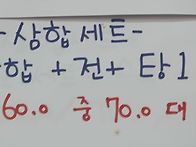 -삼합세트-
합 + 전 + 탕 1
60.0 중 70.0 대